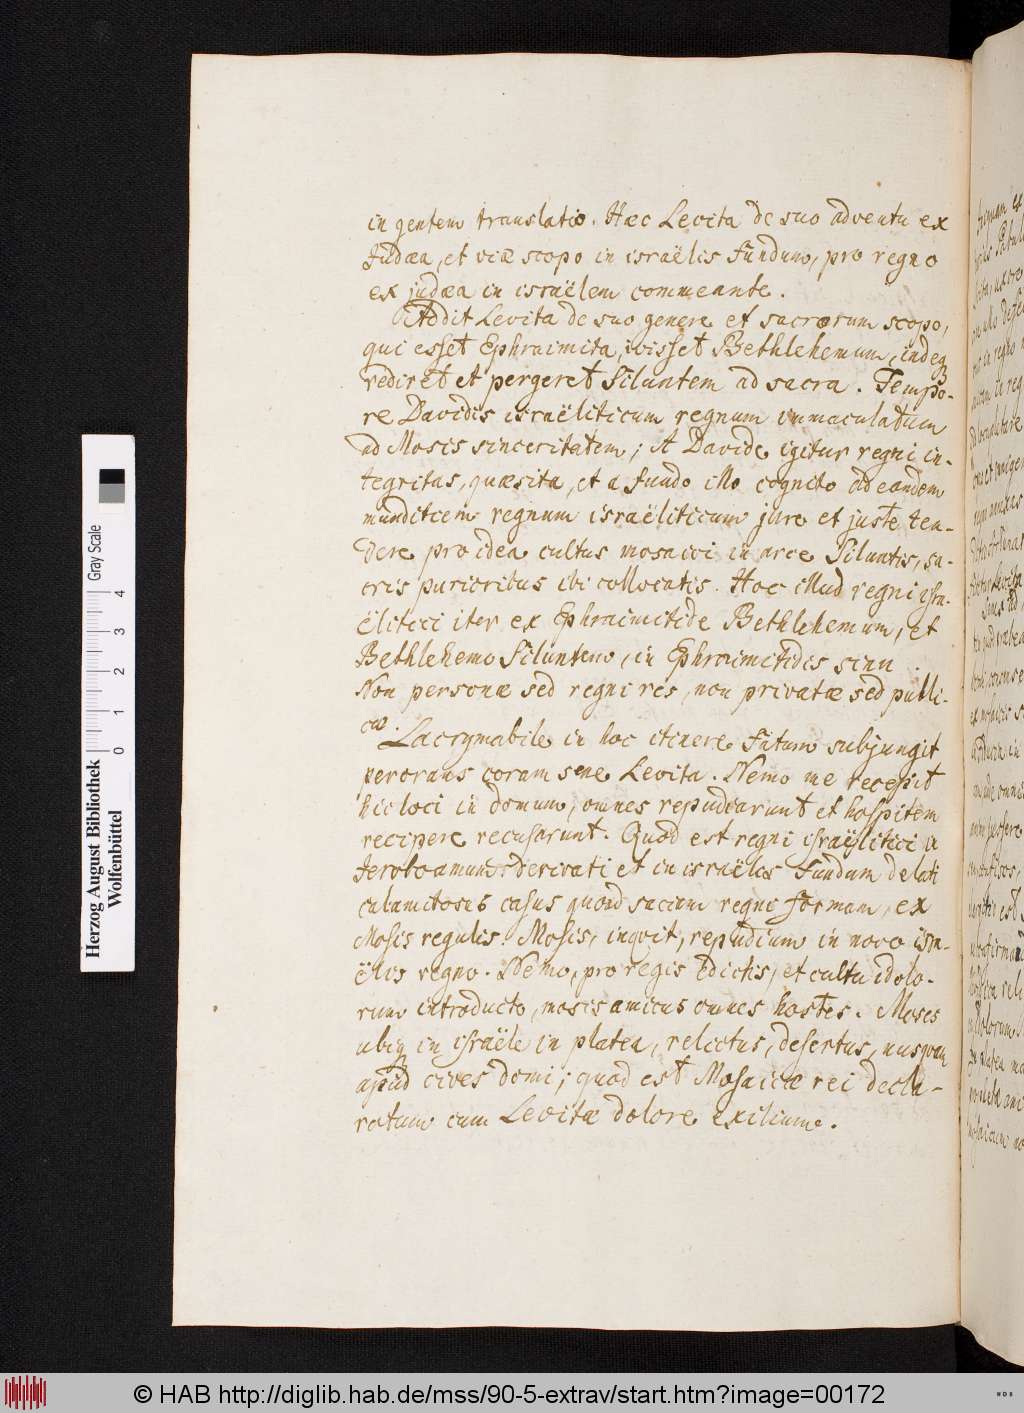 in gentem translatio. Hæc Levita de suo adventu ex
Judæa, et viæ scopo in israëlis fundum, pro regno
ex judæa in israëlem commeante.
Addit Levita de suo genere et sacrorum scopo,
qui esset Ephraimita, ivisset Bethlehemum, indeq
rediret et pergeret Siluntem ad sacra. Tempo-
re Davidis israëliticum regnum immaculatum
ad Mosis sinceritatem; A Davide igitur regni in-
tegritas, quæsita, et a fundo illo cognito ad eandem
munditiem regnum israëliticum jure et juste ten-
dere pro idea cultus mosaici in arce Siluntis, sa-
cris purioribus ibi collocatis. Hoc illud regni isra-
ëlitici iter ex Ephraimitide Bethlehemum, et
Bethlehemo Siluntem, in Ephraimitidis sinu.
Non personæ sed regni res, non privatæ sed publi-
cæ.
Lacrymabile in hoc itinere Fatum subjungit
perorans coram sene Levita. Nemo me recepit
hic loci in domum, omnes repudiarunt et hospitem
recipere recusarunt. Quod est regni israëlitici a
Jeroboamo derivati et in israëlis fundum delati
calamitosus casus quoad sacram regni formam, ex
Mosis regulis. Mosis, inqvit, repudium in novo isra-
ëlis regno. Nemo, pro regis edictis, et cultu idolo-
rum introducto, mosis amicus omnes hostes. Moses
ubiq in israële in platea, relictus, desertus, nusqvam
apud cives domi; quod est Mosaicæ rei decla-
ratum cum Levitæ dolore exilium.
Herzog August Bibliothek
Wolfenbüttel
Gray Scale
0 1 2 3 4
© HAB http://diglib.hab.de/mss/90-5-extrav/start.htm?image=00172